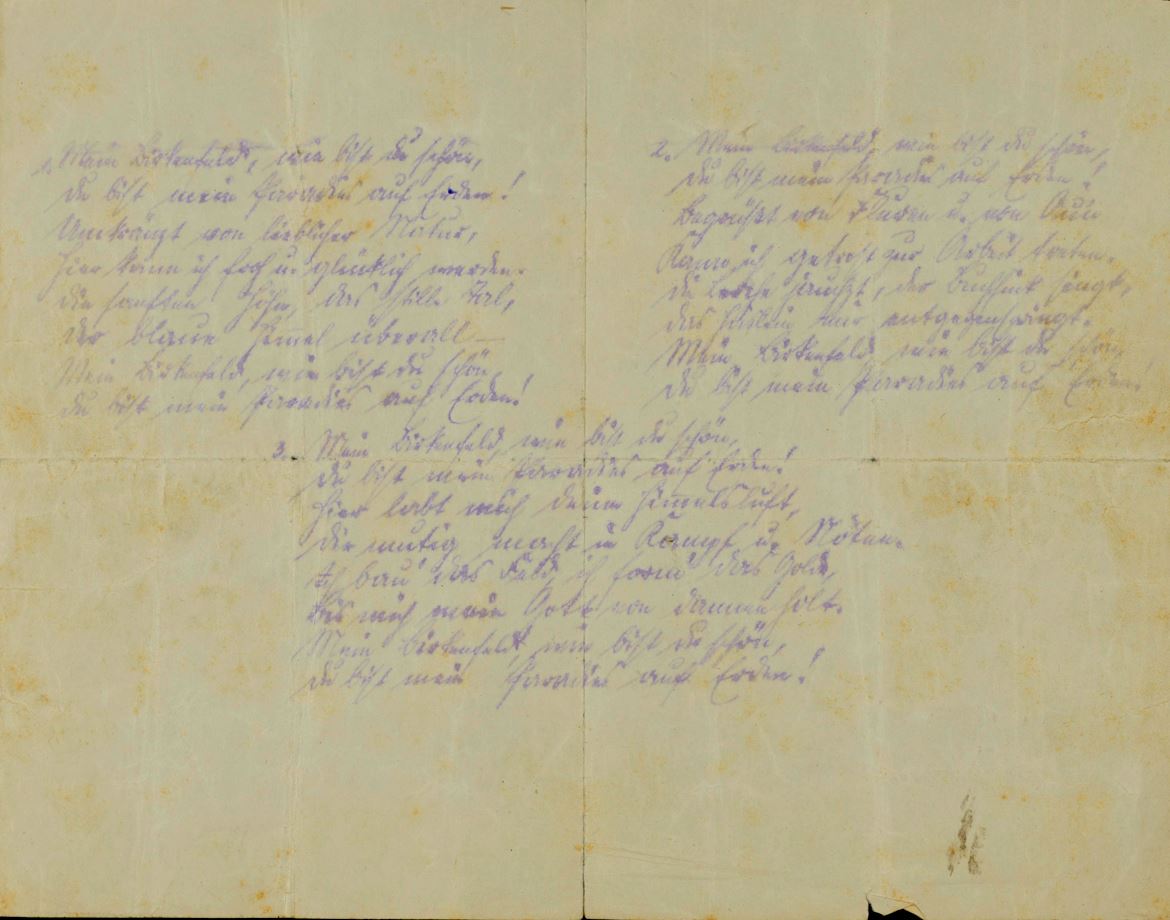 1. Mein Birkenfeld, wie bist du schön,
du bist mein Paradies auf Erden!
Umkränzt von lieblicher Natur,
hier kann ich froh u. glücklich werden.
die sanften Höhn, das stille Tal,
der blaue Himmel überall –
Mein Birkenfeld, wie bist du schön,
du bist mein Paradies auf Erden!
2. Mein Birkenfeld, wie bist du schön,
du bist mein Paradies auf Erden!
Begrüßt von Fluren u. von Au'n
Kann ich getrost zur Arbeit treten.
die Lerche jauchzt, der Buchfink singt,
das Häslein mir entgegenspringt.
Mein Birkenfeld, wie bist du schön,
du bist mein Paradies auf Erden!
3. Mein Birkenfeld, wie bist du schön,
du bist mein Paradies auf Erden!
Hier labt mich deine Himmelsluft,
die mutig macht in Kampf u. Nöten.
Ich bau' das Feld, ich form' das Gold,
bis mich mein Gott von dannen holt.
Mein Birkenfeld, wie bist du schön,
du bist mein Paradies auf Erden!